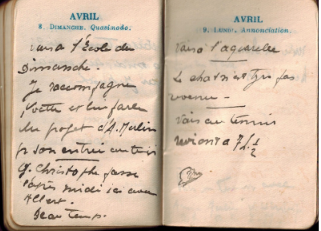 AVRIL
8. DIMANCHE. Quasimodo.
vais à l'École du
Dimanche.
je raccompagne
Yvette et lui parle
du projet d'A.
pr son entrée au tennis
G. Christophe passe
l'après midi ici avec
Albert.
Beau temps.
AVRIL
9. LUNDI. Annonciation.
vais à l'aquarelle
Le chat n'est pas
revenu —
vais au tennis
reviens à 7h ½